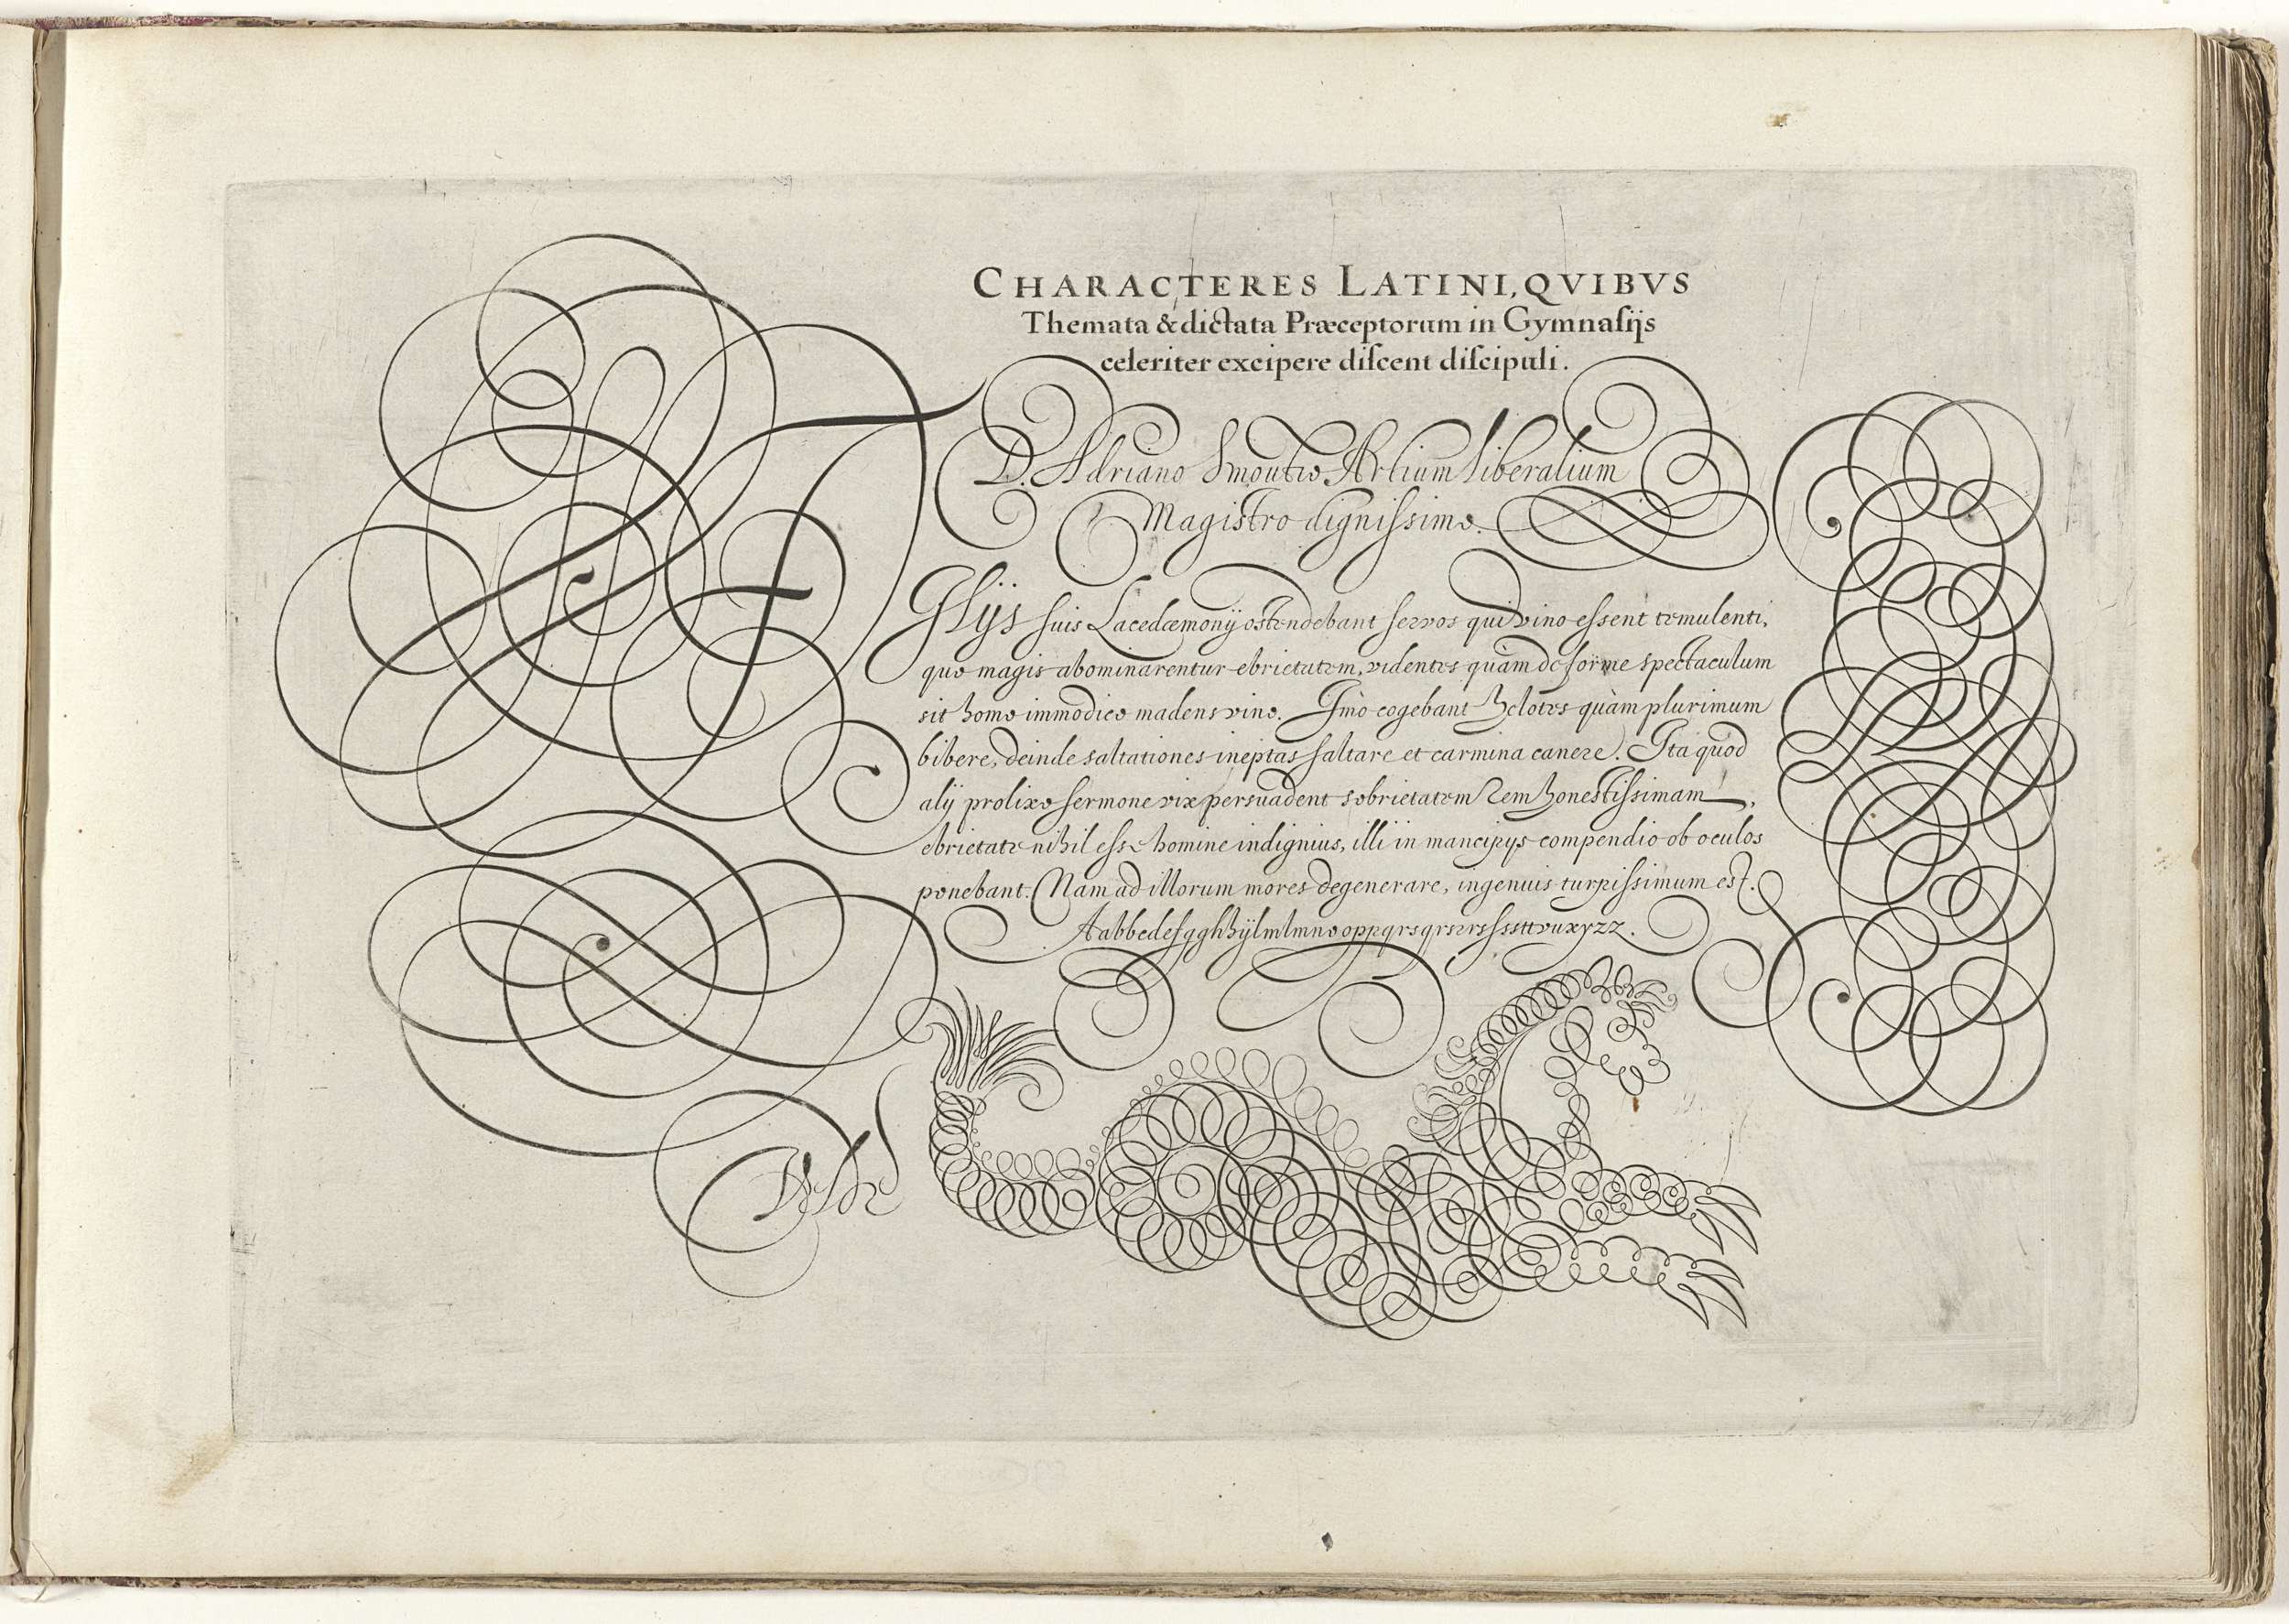 CHARACTERES LATINI, QVIBVS
Themata & dictata Præceptorum in Gymnaſijs
celeriter excipere diſcent diſcipuli.
D. Adriano Smoutio Artium liberalium
Magistro digniſsimo.
Filijs suis Lacedæmonij ostendebant servos qui vino eſsent temulenti,
quo magis abominarentur ebrietatem, videntes quàm deforme spectaculum
sit homo immodico madens vino. Imò cogebant helotes quàm plurimum
bibere, deinde saltationes ineptas saltare et carmina canere. Ita quod
alij prolixo sermone vix persuadent sobrietatem rem honestiſsimam,
ebrietate nihil eſse homine indignius, illi in mancipijs compendio ob oculos
ponebant. Nam ad illorum mores degenerare, ingenuis turpiſsimum est.